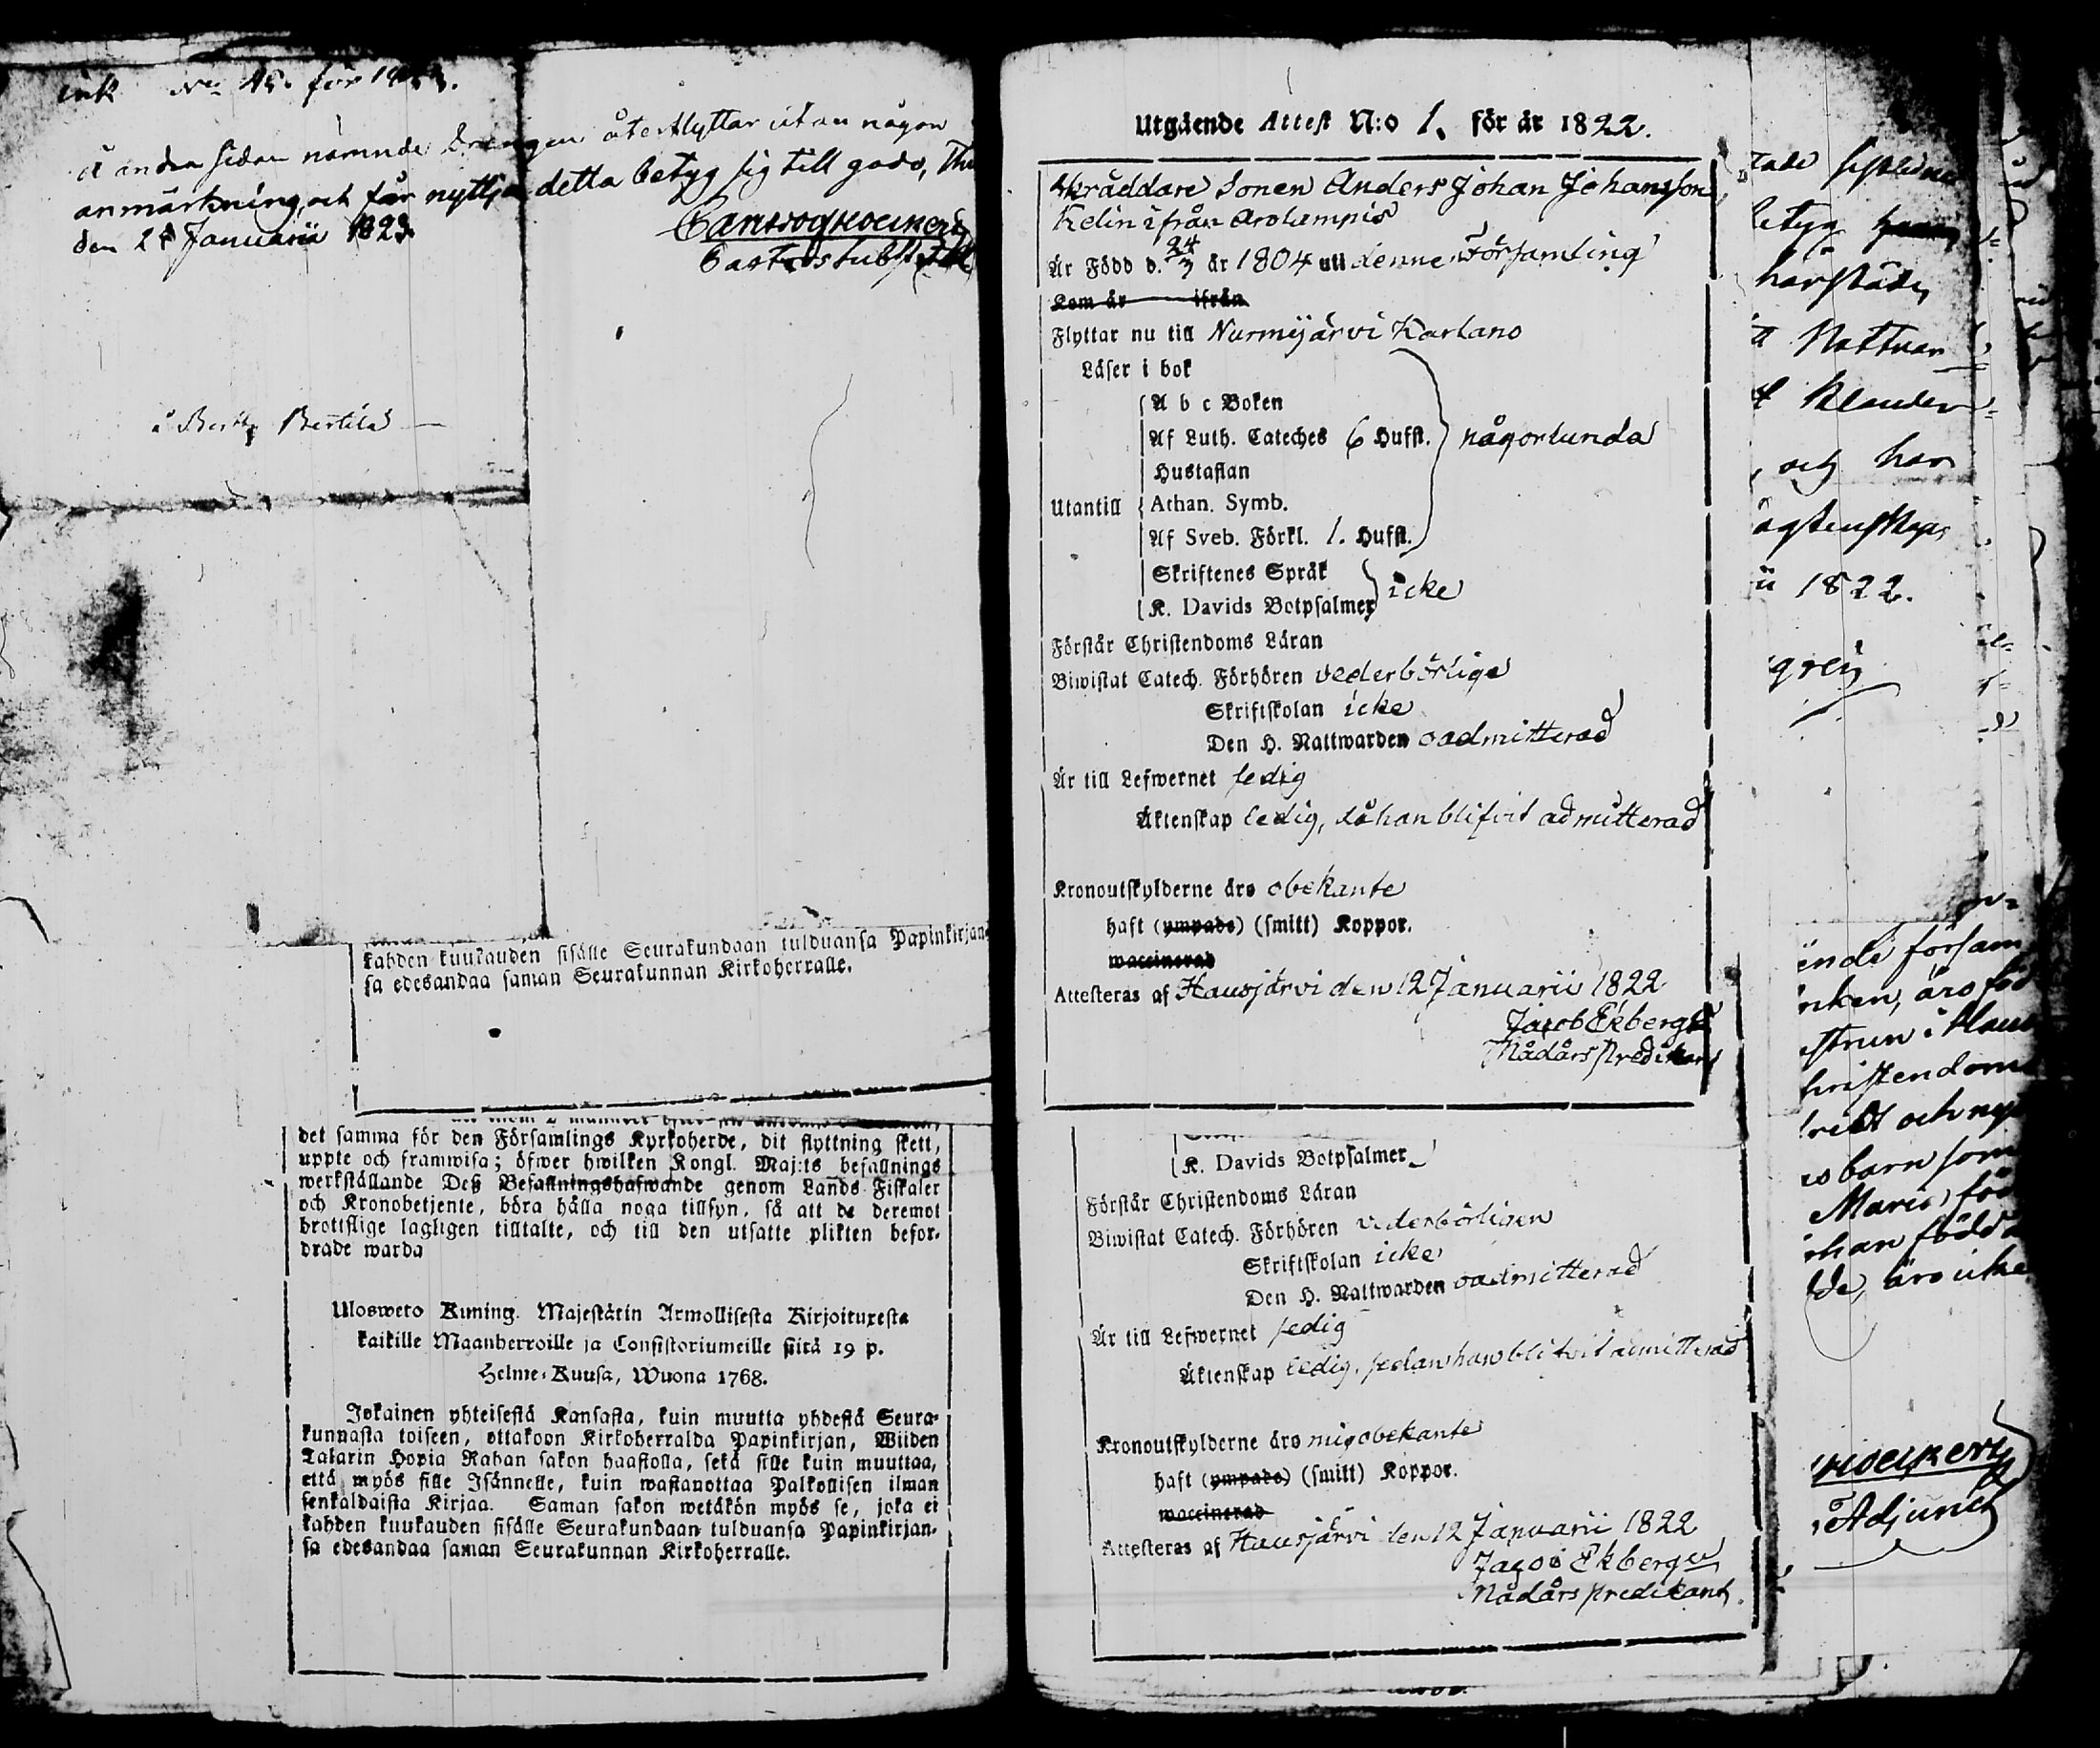 ink No 45. för 1823.
å andra sidan nämnde Drengen återflyttar utan någon
anmärkning, och får nyttja detta betyg sig till godo,
den 28 Januarii 1823.
å Bertila
kahden kuukauden sisälle Seurakundaan tulduansa Papinkirjan-
sa edesandaa saman Seurakunnan Kirkoherralle.
det samma för den Församlings Kyrkoherde, dit flyttning skett,
uppte och framwisa; öfwer hwilken Kongl. Maj:ts befallnings
werkställande Deß Befallningshafwande genom Lands Fiskaler
och Kronobetjente, böra hålla noga tillsyn, så att de deremot
brottslige lagligen tilltalte, och till den utsatte plikten befor-
drade warda
Ulosweto Kuning. Majestätin Armollisesta Kirjoituxesta
kaikille Maanherroille ja Consistoriumeille siitä 19 p.
Helme-Kuusa, Wuona 1768.
Jokainen yhteisestä Kansasta, kuin muutta yhdestä Seura-
kunnasta toiseen, ottakoon Kirkoherralda Papinkirjan, Wiiden
Talarin Hopia Rahan sakon haastolla, sekä sille kuin muuttaa,
että myös sille Isännelle, kuin wastanottaa Palkollisen ilman
senkaldaista Kirjaa. Saman sakon wetäkön myös se, joka ei
kahden kuukauden sisälle Seurakundaan tulduansa Papinkirjan-
sa edesandaa saman Seurakunnan Kirkoherralle.
Utgående Attest N:o 1. för år 1822.
Skräddare Sonen Anders Johan Johansson
Kelin ifrån Arolampis
Är Född d. 24/3 år 1804 uti denne Församling
Kom år ifrån
Flyttar nu till Nurmijärvi Karhano
Läser i bok
A b c Boken
Af Luth. Cateches 6 Hufst. någorlunda
Hustaflan
Utantill Athan. Symb.
Af Sveb. Förkl. 1. Hufst.
Skriftenes Språk
K. Davids Botpsalmer icke
Förstår Christendoms Läran
Biwistat Catech. Förhören vederbörlige
Skriftskolan icke
Den H. Nattwarden oadmitterad
Är till Lefwernet sedig
Äktenskap ledig, då han blifvit admitterad
Kronoutskylderne äro obekante
haft (ympade) (smitt) Koppor.
waccinerad
Attesteras af Hausjärvi den 12 Januarii 1822
Jacob Ekberg
Nådårs predikant
K. Davids Botpsalmer
Förstår Christendoms Läran
Biwistat Catech. Förhören vederbörligen
Skriftskolan icke
Den H. Nattwarden oadmitterad
Är till Lefwernet sedig
Äktenskap ledig, sedan han blifvit admitterad
Kronoutskylderne äro mig obekante
haft (ympade) (smitt) Koppor.
waccinerad
Attesteras af Hausjärvi den 12 Januarii 1822
Jacob Ekberg
Nådårs predikant.
härstädes
Nattvar
Klander
och har
1822.
ende försam
strun i Haus
hristendom
barn som
Maria föd
han född
äro icke
Adjunct